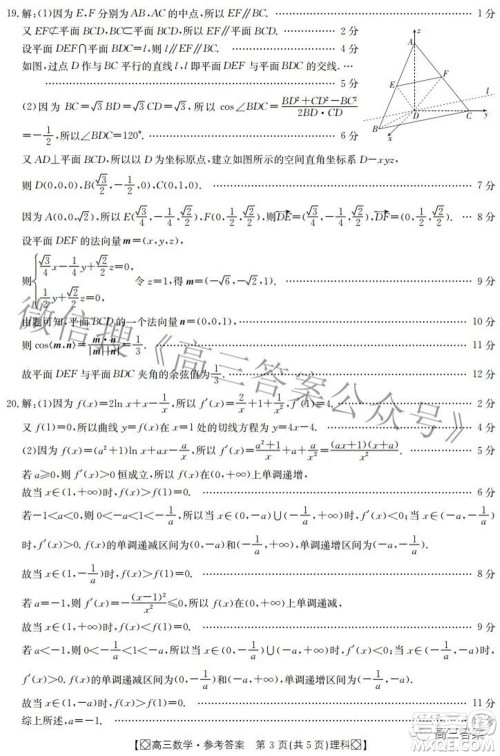 19.解:(1)因为E,F分别为AB,AC的中点,所以EF∥BC. …… 1分
又EF⊄平面BCD,BC⊂平面BCD,所以EF∥平面BCD. …… 2分
设平面DEF∩平面BDC=l,则l∥EF∥BC. …… 4分
如图,过点D作与BC平行的直线l,l即平面DEF与平面BDC的交线. …
…… 5分
(2)因为BC=√3BD=√3CD=√3,所以cos∠BDC=(BD²+CD²-BC²)/(2BD·CD)
=-1/2,所以∠BDC=120°. …… 6分
又AD⊥平面BCD,所以以D为坐标原点,建立如图所示的空间直角坐标系D-xyz,
则D(0,0,0),B(√3/2,-1/2,0),C(0,1,0). …… 7分
因为A(0,0,√2),所以E(√3/4,-1/4,√2/2),F(0,1/2,√2/2),则DE=(√3/4,-1/4,√2/2),DF=(0,1/2,√2/2). … 8分
设平面DEF的法向量m=(x,y,z),
则{√3/4x-1/4y+√2/2z=0, 1/2y+√2/2z=0, 令z=1,得m=(-√6,-√2,1). …… 9分
由题可知,平面BCD的一个法向量n=(0,0,1), …… 10分
则cos⟨m,n⟩=m·n/|m||n|=1/3. …… 11分
故平面DEF与平面BDC夹角的余弦值为1/3. …… 12分
20.解:(1)因为f(x)=2ln x+x-1/x,所以f′(x)=2/x+1+1/x²,f′(1)=4. …… 2分
又f(1)=0,所以曲线y=f(x)在x=1处的切线方程为y=4x-4. …… 4分
(2)因为f(x)=(a²+1)ln x+ax-a/x,所以f′(x)=(a²+1)/x+a+a/x²=(ax+1)(x+a)/x². …… 5分
若a≥0,则f′(x)>0恒成立,所以f(x)在(0,+∞)上单调递增,
故当x∈(1,+∞)时,f(x)>f(1)=0. …… 6分
若-1<a<0,则0<-a<1<-1/a,所以当x∈(0,-a)∪(-1/a,+∞)时,f′(x)<0;当x∈(-a,-1/a)
时,f′(x)>0.f(x)的单调递减区间为(0,-a)和(-1/a,+∞),单调递增区间为(-a,-1/a).
故当x∈(1,-1/a)时,f(x)>f(1)=0. …… 8分
若a=-1,则f′(x)=-(x-1)²/x²≤0,所以f(x)在(0,+∞)上单调递减,
故当x∈(1,+∞)时,f(x)<f(1)=0. …… 9分
若a<-1,则0<-1/a<1<-a,所以当x∈(0,-1/a)∪(-a,+∞)时,f′(x)<0;当x∈(-1/a,-a)时,
f′(x)>0.f(x)的单调递减区间为(0,-1/a)和(-a,+∞),单调递增区间为(-1/a,-a).
故当x∈(1,-a)时,f(x)>f(1)=0. …… 11分
综上所述,a=-1.
【高三数学·参考答案 第3页(共5页)理科】
A
E
F
D
B
C
x
y
z
l
微信搜《高三答案公众号》
高三答案